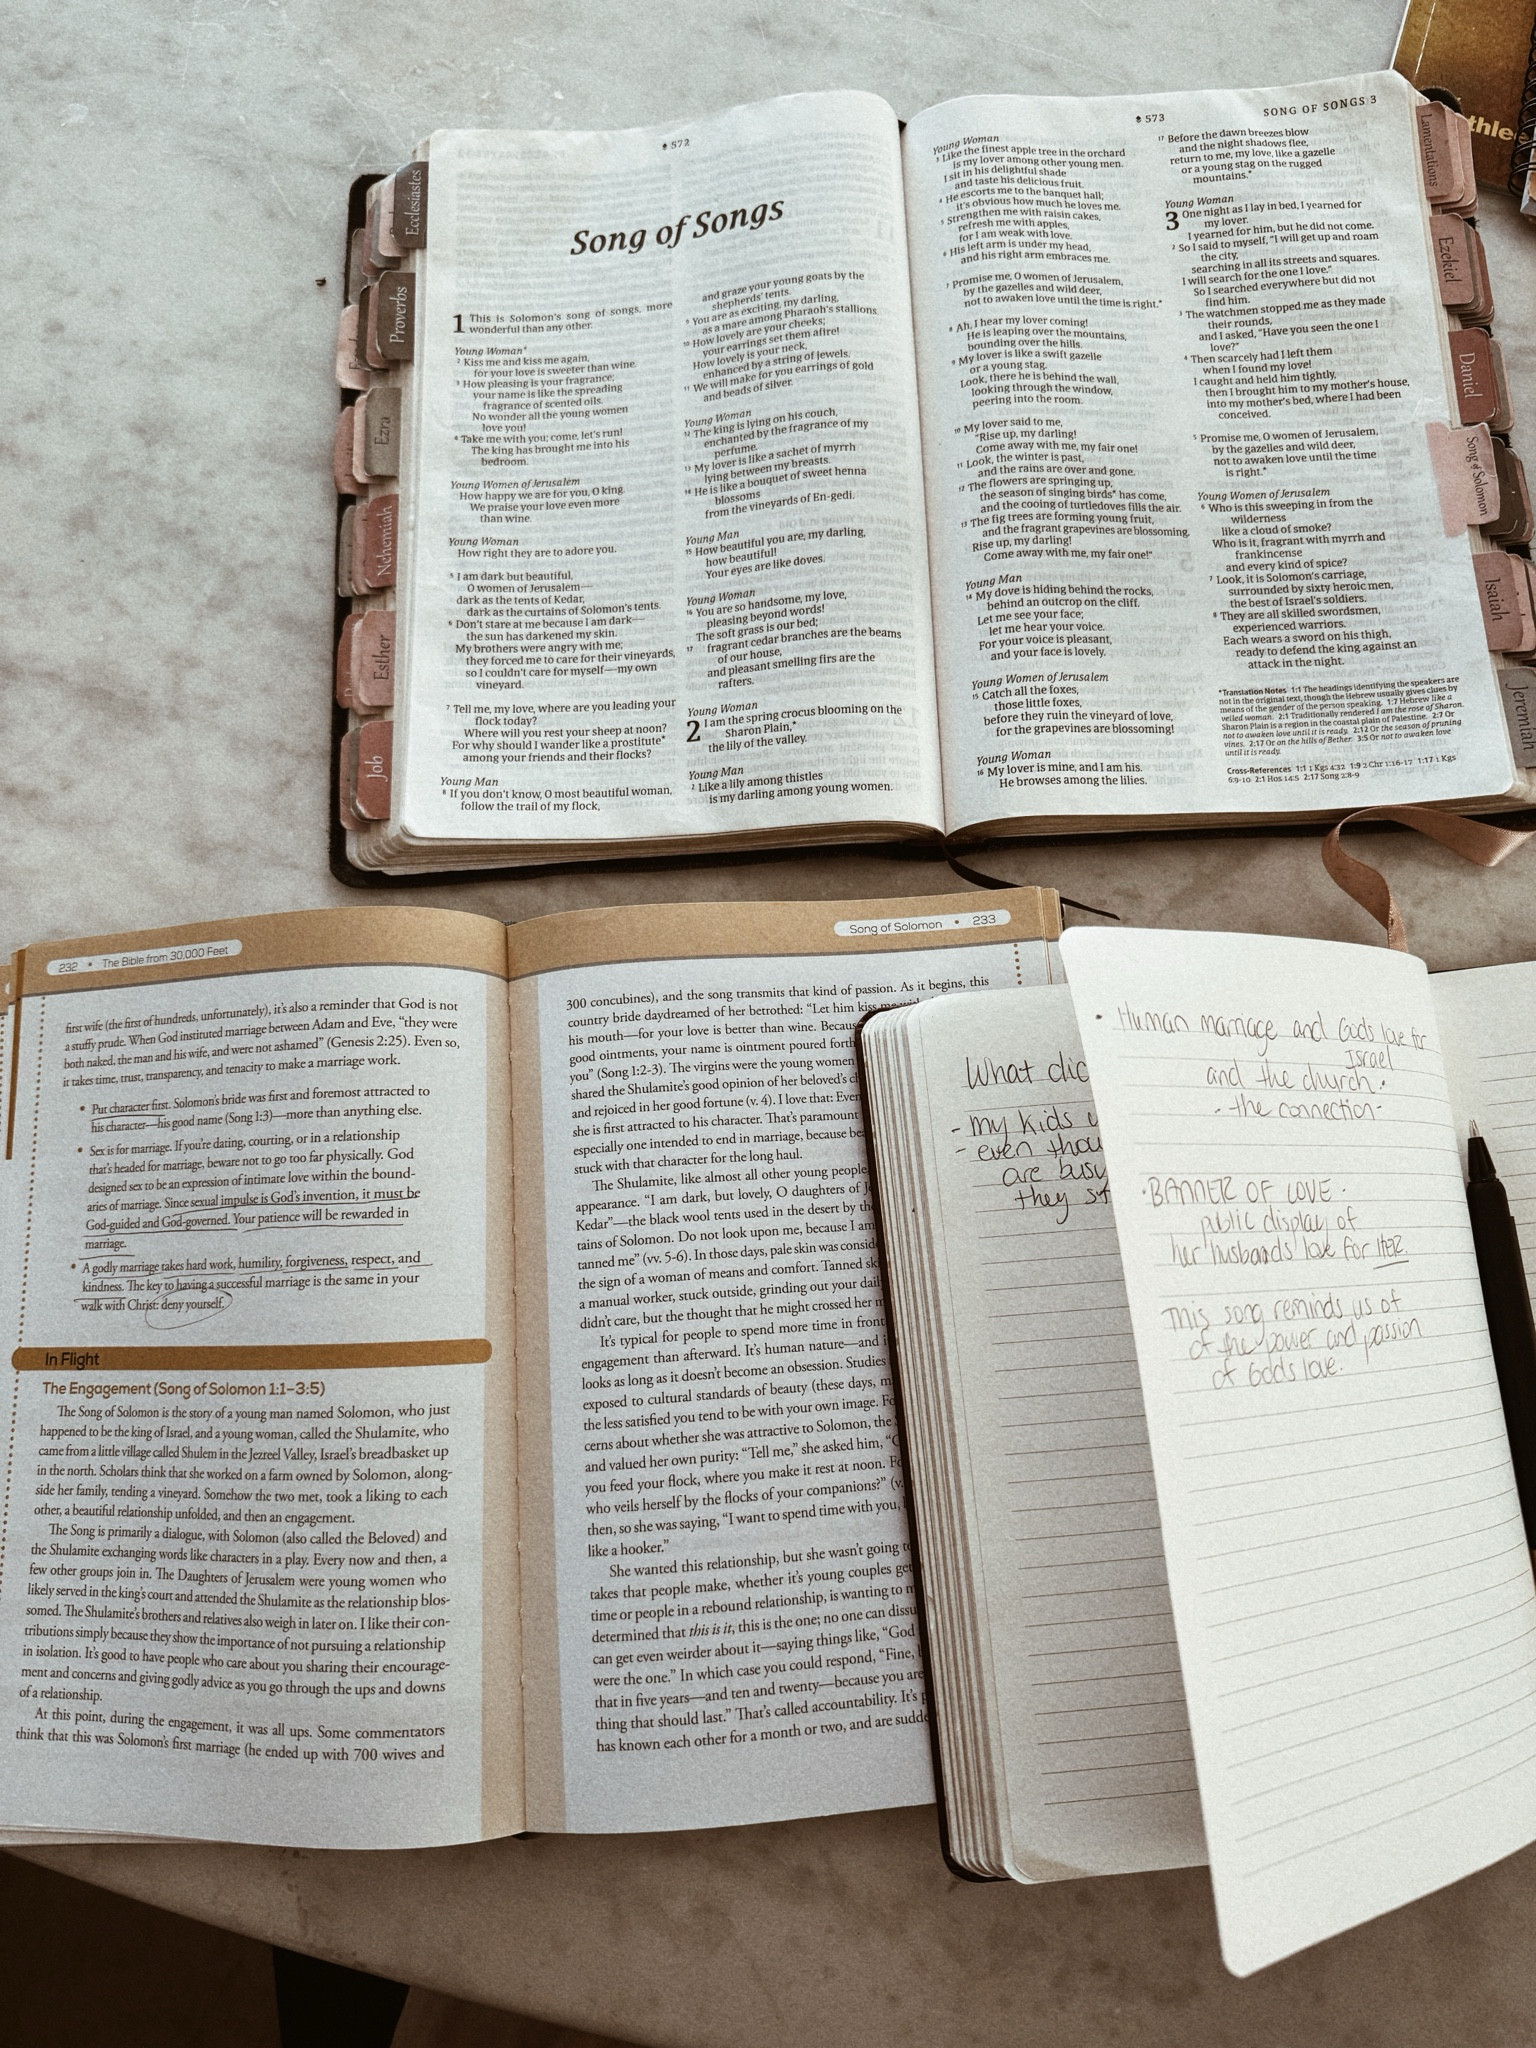 572
Song of Songs
1 This is Solomon's song of songs, more
wonderful than any other.
Young Woman*
2 Kiss me and kiss me again,
for your love is sweeter than wine.
3 How pleasing is your fragrance;
your name is like the spreading
fragrance of scented oils.
No wonder all the young women
love you!
4 Take me with you; come, let's run!
The king has brought me into his
bedroom.
Young Women of Jerusalem
How happy we are for you, O king.
We praise your love even more
than wine.
Young Woman
How right they are to adore you.
5 I am dark but beautiful,
O women of Jerusalem—
dark as the tents of Kedar,
dark as the curtains of Solomon's tents.
6 Don't stare at me because I am dark—
the sun has darkened my skin.
My brothers were angry with me;
they forced me to care for their vineyards,
so I couldn't care for myself—my own
vineyard.
7 Tell me, my love, where are you leading your
flock today?
Where will you rest your sheep at noon?
For why should I wander like a prostitute*
among your friends and their flocks?
Young Man
8 If you don't know, O most beautiful woman,
follow the trail of my flock,
and graze your young goats by the
shepherds' tents.
9 You are as exciting, my darling,
as a mare among Pharaoh's stallions.
10 How lovely are your cheeks;
your earrings set them afire!
How lovely is your neck,
enhanced by a string of jewels.
11 We will make for you earrings of gold
and beads of silver.
Young Woman
12 The king is lying on his couch,
enchanted by the fragrance of my
perfume.
13 My lover is like a sachet of myrrh
lying between my breasts.
14 He is like a bouquet of sweet henna
blossoms
from the vineyards of En-gedi.
Young Man
15 How beautiful you are, my darling,
how beautiful!
Your eyes are like doves.
Young Woman
16 You are so handsome, my love,
pleasing beyond words!
The soft grass is our bed;
17 fragrant cedar branches are the beams
of our house,
and pleasant smelling firs are the
rafters.
Young Woman
2 I am the spring crocus blooming on the
Sharon Plain,*
the lily of the valley.
Young Man
2 Like a lily among thistles
is my darling among young women.
573
SONG OF SONGS 3
Young Woman
3 Like the finest apple tree in the orchard
is my lover among other young men.
I sit in his delightful shade
and taste his delicious fruit.
4 He escorts me to the banquet hall;
it's obvious how much he loves me.
5 Strengthen me with raisin cakes,
refresh me with apples,
for I am weak with love.
6 His left arm is under my head,
and his right arm embraces me.
7 Promise me, O women of Jerusalem,
by the gazelles and wild deer,
not to awaken love until the time is right.*
8 Ah, I hear my lover coming!
He is leaping over the mountains,
bounding over the hills.
9 My lover is like a swift gazelle
or a young stag.
Look, there he is behind the wall,
looking through the window,
peering into the room.
10 My lover said to me,
"Rise up, my darling!
Come away with me, my fair one!
11 Look, the winter is past,
and the rains are over and gone.
12 The flowers are springing up,
the season of singing birds* has come,
and the cooing of turtledoves fills the air.
13 The fig trees are forming young fruit,
and the fragrant grapevines are blossoming.
Rise up, my darling!
Come away with me, my fair one!"
Young Man
14 My dove is hiding behind the rocks,
behind an outcrop on the cliff.
Let me see your face;
let me hear your voice.
For your voice is pleasant,
and your face is lovely.
Young Women of Jerusalem
15 Catch all the foxes,
those little foxes,
before they ruin the vineyard of love,
for the grapevines are blossoming!
Young Woman
16 My lover is mine, and I am his.
He browses among the lilies.
17 Before the dawn breezes blow
and the night shadows flee,
return to me, my love, like a gazelle
or a young stag on the rugged
mountains.*
Young Woman
3 One night as I lay in bed, I yearned for
my lover.
I yearned for him, but he did not come.
2 So I said to myself, "I will get up and roam
the city,
searching in all its streets and squares.
I will search for the one I love."
So I searched everywhere but did not
find him.
3 The watchmen stopped me as they made
their rounds,
and I asked, "Have you seen the one I
love?"
4 Then scarcely had I left them
when I found my love!
I caught and held him tightly,
then I brought him to my mother's house,
into my mother's bed, where I had been
conceived.
5 Promise me, O women of Jerusalem,
by the gazelles and wild deer,
not to awaken love until the time
is right.*
Young Women of Jerusalem
6 Who is this sweeping in from the
wilderness
like a cloud of smoke?
Who is it, fragrant with myrrh and
frankincense
and every kind of spice?
7 Look, it is Solomon's carriage,
surrounded by sixty heroic men,
the best of Israel's soldiers.
8 They are all skilled swordsmen,
experienced warriors.
Each wears a sword on his thigh,
ready to defend the king against an
attack in the night.
*Translation Notes 1:1 The headings identifying the speakers are
not in the original text, though the Hebrew usually gives clues by
means of the gender of the person speaking. 1:7 Hebrew like a
veiled woman. 2:1 Traditionally rendered I am the rose of Sharon.
Sharon Plain is a region in the coastal plain of Palestine. 2:7 Or
not to awaken love until it is ready. 2:12 Or the season of pruning
vines. 2:17 Or on the hills of Bether. 3:5 Or not to awaken love
until it is ready.
Cross-References 1:1 1 Kgs 4:32 1:9 2 Chr 1:16-17 1:17 1 Kgs
6:9-10 2:1 Hos 14:5 2:17 Song 2:8-9
Ecclesiastes
Proverbs
Ezra
Nehemiah
Esther
Job
Lamentations
Ezekiel
Daniel
Song of Solomon
Isaiah
Jeremiah
thlee
232 • The Bible from 30,000 Feet
first wife (the first of hundreds, unfortunately), it's also a reminder that God is not
a stuffy prude. When God instituted marriage between Adam and Eve, "they were
both naked, the man and his wife, and were not ashamed" (Genesis 2:25). Even so,
it takes time, trust, transparency, and tenacity to make a marriage work.
• Put character first. Solomon's bride was first and foremost attracted to
his character—his good name (Song 1:3)—more than anything else.
• Sex is for marriage. If you're dating, courting, or in a relationship
that's headed for marriage, beware not to go too far physically. God
designed sex to be an expression of intimate love within the bound-
aries of marriage. Since sexual impulse is God's invention, it must be
God-guided and God-governed. Your patience will be rewarded in
marriage.
• A godly marriage takes hard work, humility, forgiveness, respect, and
kindness. The key to having a successful marriage is the same in your
walk with Christ: deny yourself.
In Flight
The Engagement (Song of Solomon 1:1–3:5)
The Song of Solomon is the story of a young man named Solomon, who just
happened to be the king of Israel, and a young woman, called the Shulamite, who
came from a little village called Shulem in the Jezreel Valley, Israel's breadbasket up
in the north. Scholars think that she worked on a farm owned by Solomon, along-
side her family, tending a vineyard. Somehow the two met, took a liking to each
other, a beautiful relationship unfolded, and then an engagement.
The Song is primarily a dialogue, with Solomon (also called the Beloved) and
the Shulamite exchanging words like characters in a play. Every now and then, a
few other groups join in. The Daughters of Jerusalem were young women who
likely served in the king's court and attended the Shulamite as the relationship blos-
somed. The Shulamite's brothers and relatives also weigh in later on. I like their con-
tributions simply because they show the importance of not pursuing a relationship
in isolation. It's good to have people who care about you sharing their encourage-
ment and concerns and giving godly advice as you go through the ups and downs
of a relationship.
At this point, during the engagement, it was all ups. Some commentators
think that this was Solomon's first marriage (he ended up with 700 wives and
Song of Solomon • 233
300 concubines), and the song transmits that kind of passion. As it begins, this
country bride daydreamed of her betrothed: "Let him kiss me
his mouth—for your love is better than wine. Becaus
good ointments, your name is ointment poured forth
you" (Song 1:2-3). The virgins were the young women
shared the Shulamite's good opinion of her beloved's c
and rejoiced in her good fortune (v. 4). I love that: Even
she is first attracted to his character. That's paramount
especially one intended to end in marriage, because be
stuck with that character for the long haul.
The Shulamite, like almost all other young people
appearance. "I am dark, but lovely, O daughters of Je
Kedar"—the black wool tents used in the desert by the
tains of Solomon. Do not look upon me, because I am
tanned me" (vv. 5-6). In those days, pale skin was consid
the sign of a woman of means and comfort. Tanned ski
a manual worker, stuck outside, grinding out your dail
didn't care, but the thought that he might crossed her m
It's typical for people to spend more time in front
engagement than afterward. It's human nature—and i
looks as long as it doesn't become an obsession. Studies
exposed to cultural standards of beauty (these days, m
the less satisfied you tend to be with your own image. Fo
cerns about whether she was attractive to Solomon, the
and valued her own purity: "Tell me," she asked him, "O
you feed your flock, where you make it rest at noon. Fo
who veils herself by the flocks of your companions?" (v.
then, so she was saying, "I want to spend time with you,
like a hooker."
She wanted this relationship, but she wasn't going to
takes that people make, whether it's young couples get
time or people in a rebound relationship, is wanting to m
determined that this is it, this is the one; no one can dissu
can get even weirder about it—saying things like, "God
were the one." In which case you could respond, "Fine,
that in five years—and ten and twenty—because you are
thing that should last." That's called accountability. It's p
has known each other for a month or two, and are sudde
What dic
- my kids
- even thou
are busy
they st
• Human marriage and Gods love for
Israel
and the church.
- the connection-
•BANNER OF LOVE.
public display of
her husbands love for HER.
This song reminds us of
of the power and passion
of Gods love.